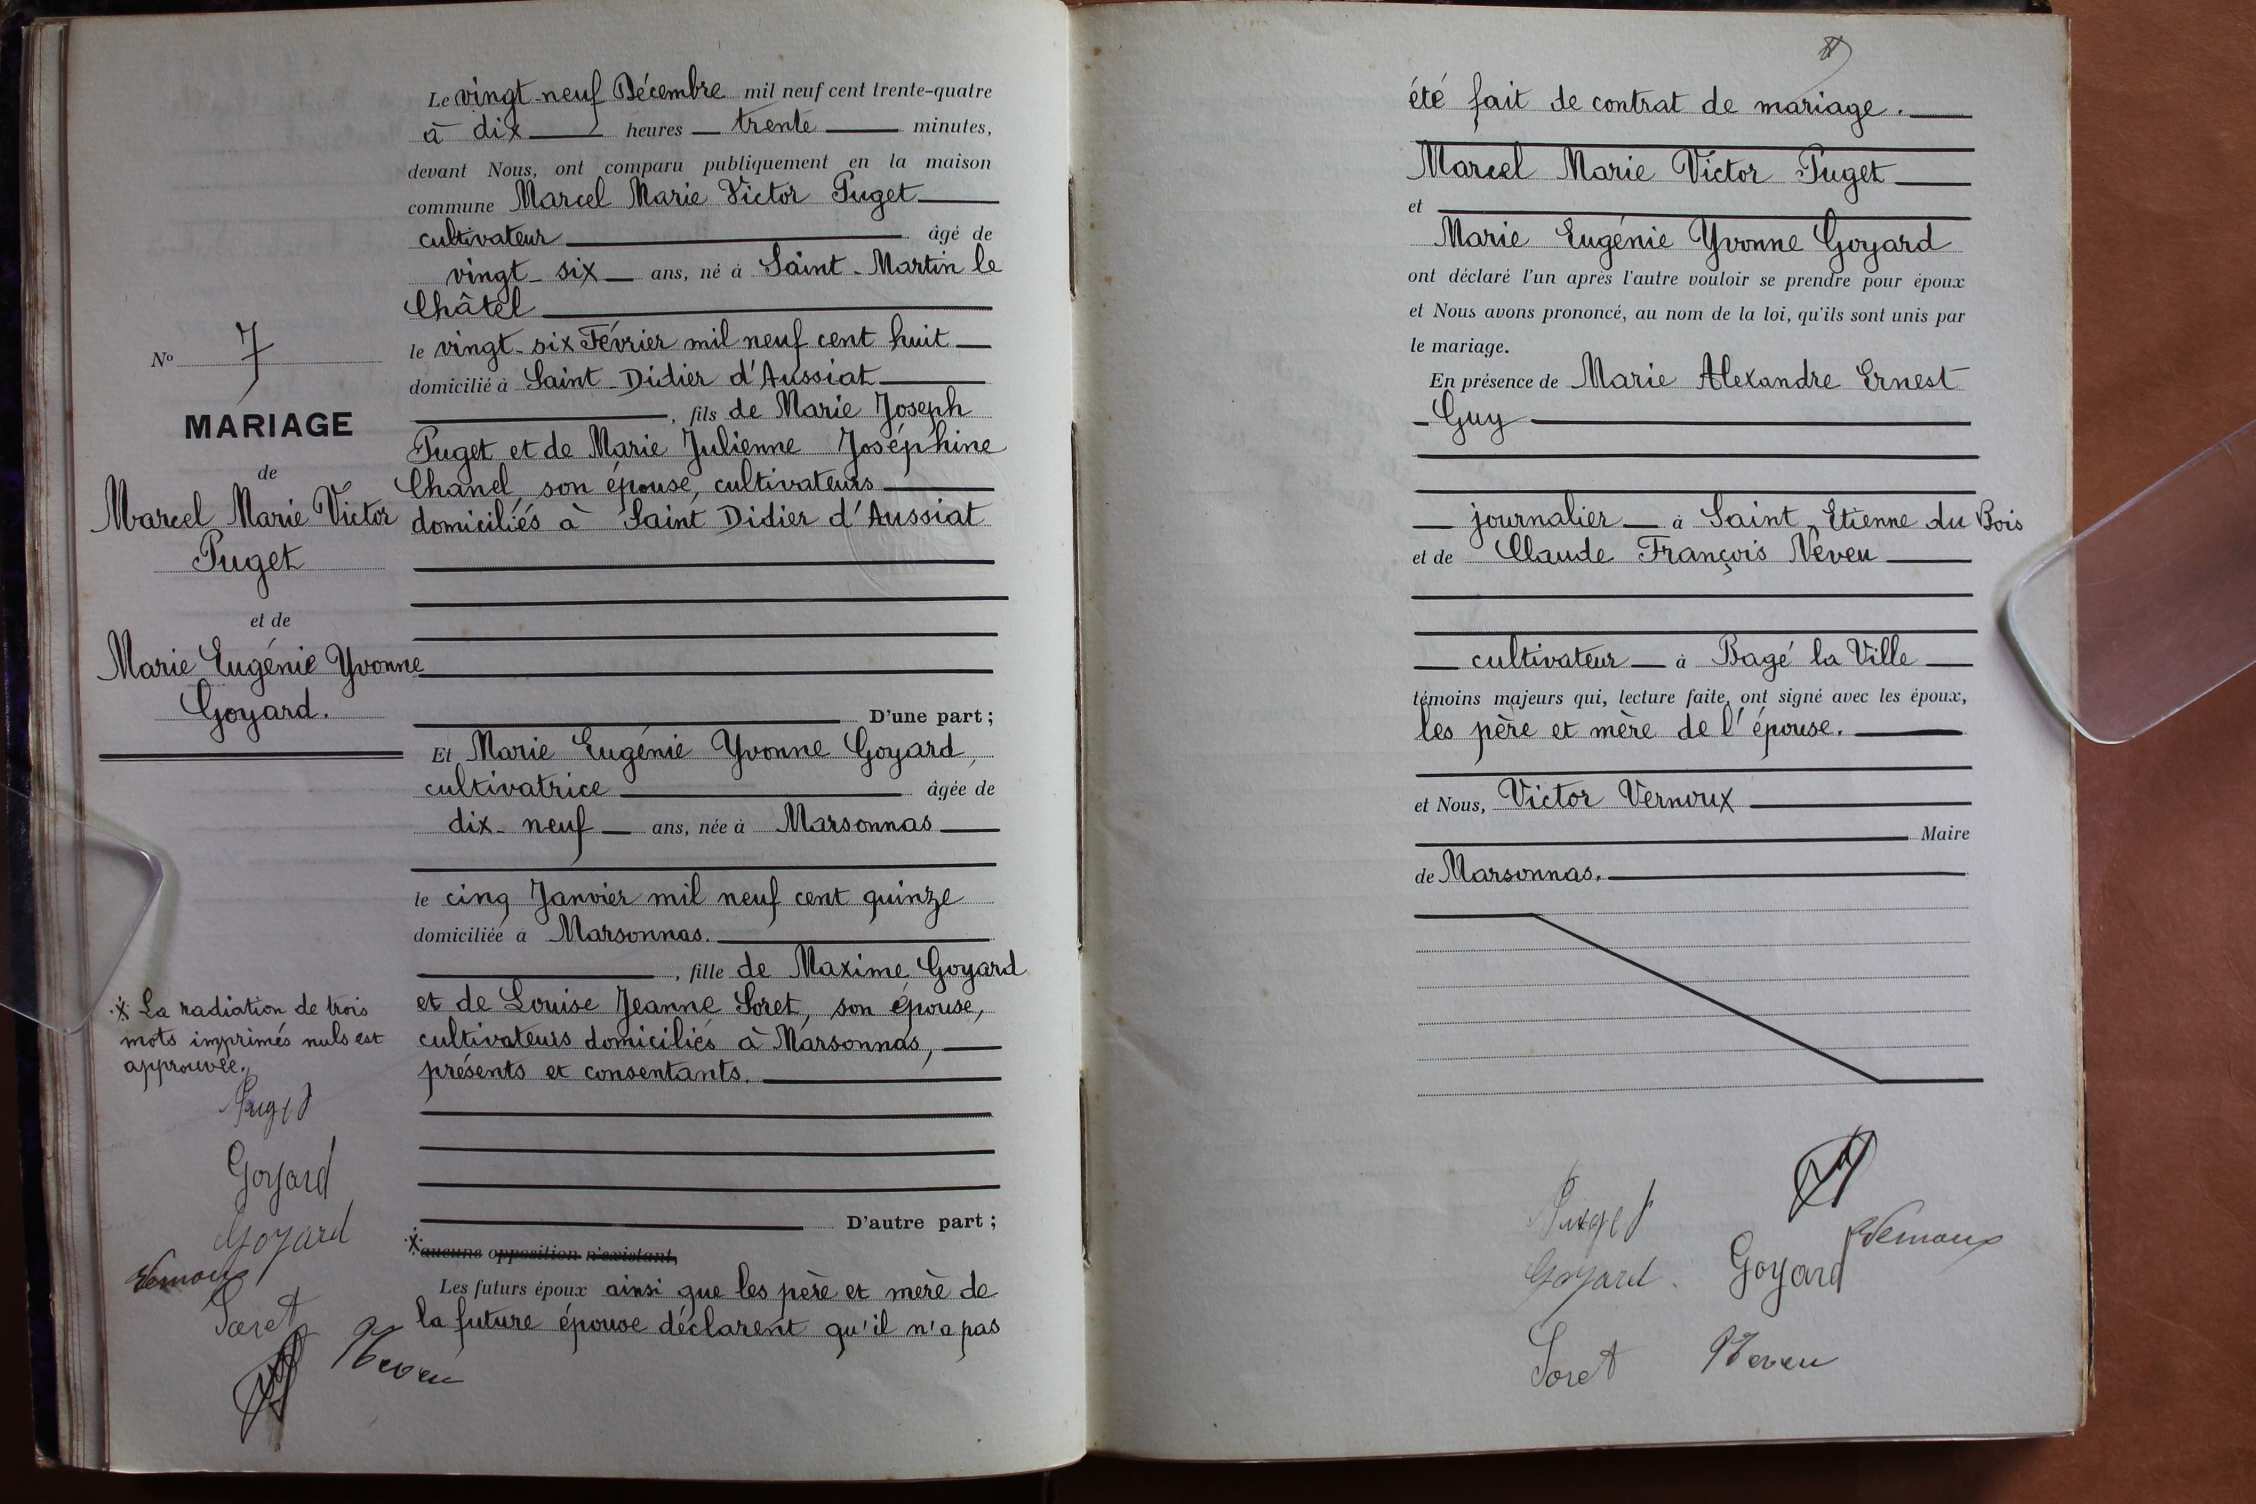 Nº 7
MARIAGE
de
Marcel Marie Victor
Puget
et de
Marie Eugénie Yvonne
Goyard.
Le vingt-neuf Décembre mil neuf cent trente-quatre
à dix heures trente minutes,
devant Nous, ont comparu publiquement en la maison
commune Marcel Marie Victor Puget
cultivateur âgé de
vingt-six ans, né à Saint-Martin le
Châtel
le vingt-six Février mil neuf cent huit
domicilié à Saint-Didier d'Aussiat
, fils de Marie Joseph
Puget et de Marie Julienne Joséphine
Chanel, son épouse, cultivateurs
domiciliés à Saint Didier d'Aussiat
D'une part ;
Et Marie Eugénie Yvonne Goyard,
cultivatrice âgée de
dix-neuf ans, née à Marsonnas
le cinq Janvier mil neuf cent quinze
domiciliée à Marsonnas.
, fille de Maxime Goyard
et de Louise Jeanne Soret, son épouse,
cultivateurs domiciliés à Marsonnas,
présents et consentants.
D'autre part ;
aucune opposition n'existant,
Les futurs époux ainsi que les père et mère de
la future épouse déclarent qu'il n'a pas
La radiation de trois
mots imprimés nuls est
approuvée.
Puget
Goyard
Goyard
Vernoux
Soret
Neveu
été fait de contrat de mariage.
Marcel Marie Victor Puget
et
Marie Eugénie Yvonne Goyard
ont déclaré l'un après l'autre vouloir se prendre pour époux
et Nous avons prononcé, au nom de la loi, qu'ils sont unis par
le mariage.
En présence de Marie Alexandre Ernest
Guy
journalier à Saint Etienne du Bois
et de Claude François Neveu
cultivateur à Bagé la Ville
témoins majeurs qui, lecture faite, ont signé avec les époux,
les père et mère de l'épouse.
et Nous, Victor Vernoux
Maire
de Marsonnas.
Puget
Vernoux
Goyard
Goyard
Soret
Neveu